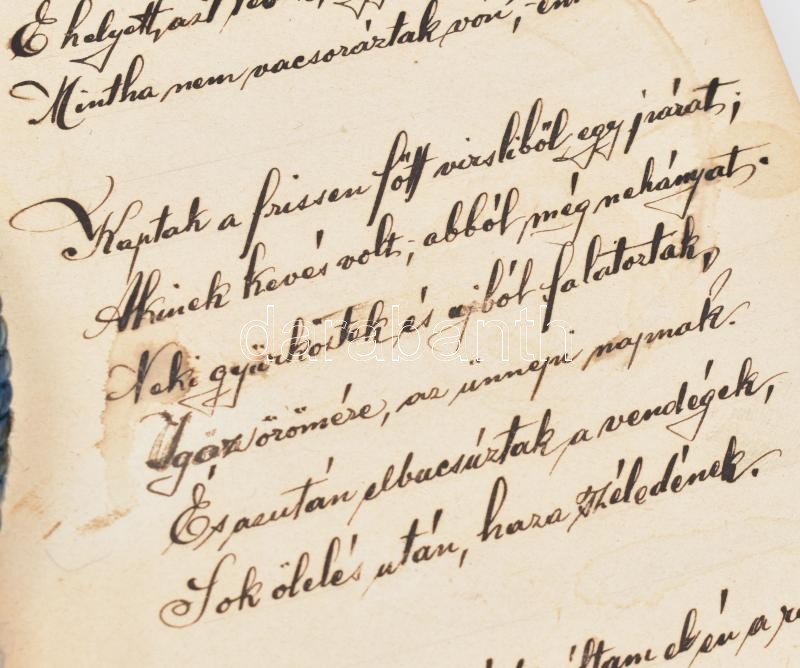 E helyett, az
Mintha nem vacsoráztak vón',
Kaptak a frissen főtt virsliből egy párat;
Akinek kevés volt, abból még nehányat.
Neki gyürkőztek és ujból falatoztak,
Igaz örömére, az ünnepi napnak.
És azután elbucsúztak a vendégek,
Sok ölelés után, haza széledének.
ek én a
darabanth